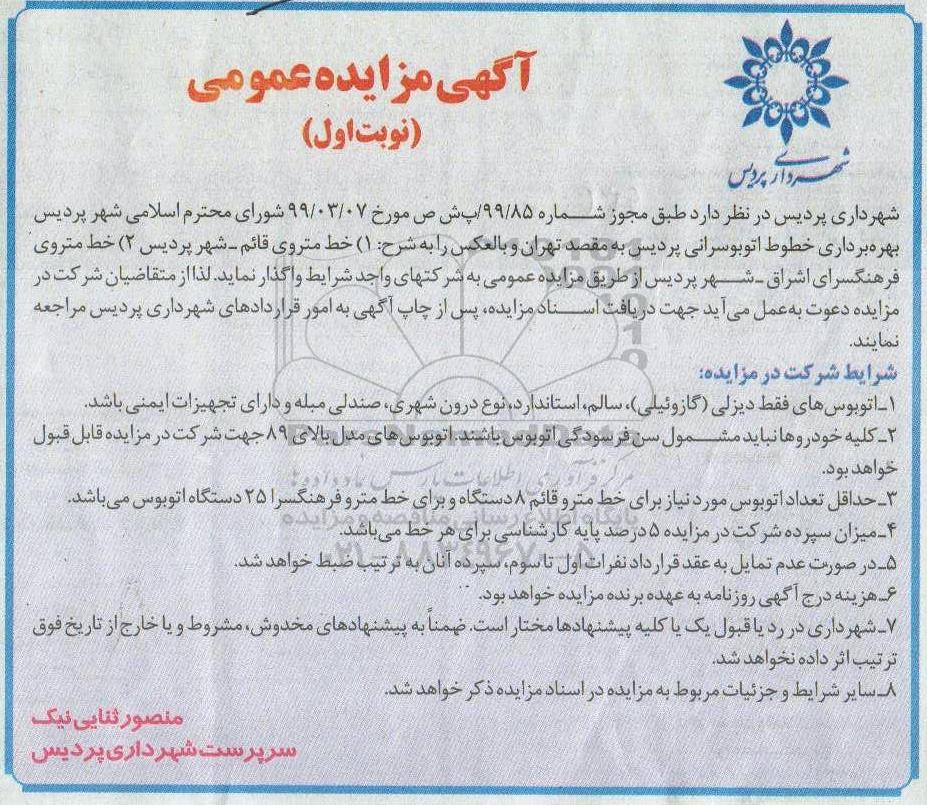 آگهی مزایده عمومی
(نوبت اول)
شهرداری پردیس
شهرداری پردیس در نظر دارد طبق مجوز شماره ۹۹/۸۵/پ‌ش ص مورخ ۹۹/۰۳/۰۷ شورای محترم اسلامی شهر پردیس
بهره‌برداری خطوط اتوبوسرانی پردیس به مقصد تهران و بالعکس را به شرح: ۱) خط متروی قائم ـ شهر پردیس ۲) خط متروی
فرهنگسرای اشراق ـ شهر پردیس از طریق مزایده عمومی به شرکتهای واجد شرایط واگذار نماید. لذا از متقاضیان شرکت در
مزایده دعوت به‌عمل می‌آید جهت دریافت اسناد مزایده، پس از چاپ آگهی به امور قراردادهای شهرداری پردیس مراجعه
نمایند.
شرایط شرکت در مزایده:
۱ـ اتوبوس‌های فقط دیزلی (گازوئیلی)، سالم، استاندارد، نوع درون شهری، صندلی مبله و دارای تجهیزات ایمنی باشد.
۲ـ کلیه خودروها نباید مشمول سن فرسودگی اتوبوس باشند. اتوبوس‌های مدل بالای ۸۹ جهت شرکت در مزایده قابل قبول
خواهد بود.
۳ـ حداقل تعداد اتوبوس مورد نیاز برای خط مترو قائم ۸ دستگاه و برای خط مترو فرهنگسرا ۲۵ دستگاه اتوبوس می‌باشد.
۴ـ میزان سپرده شرکت در مزایده ۵ درصد پایه کارشناسی برای هر خط می‌باشد.
۵ـ در صورت عدم تمایل به عقد قرارداد نفرات اول تا سوم، سپرده آنان به ترتیب ضبط خواهد شد.
۶ـ هزینه درج آگهی روزنامه به عهده برنده مزایده خواهد بود.
۷ـ شهرداری در رد یا قبول یک یا کلیه پیشنهادها مختار است. ضمناً به پیشنهادهای مخدوش، مشروط و یا خارج از تاریخ فوق
ترتیب اثر داده نخواهد شد.
۸ـ سایر شرایط و جزئیات مربوط به مزایده در اسناد مزایده ذکر خواهد شد.
منصور ثنایی نیک
سرپرست شهرداری پردیس